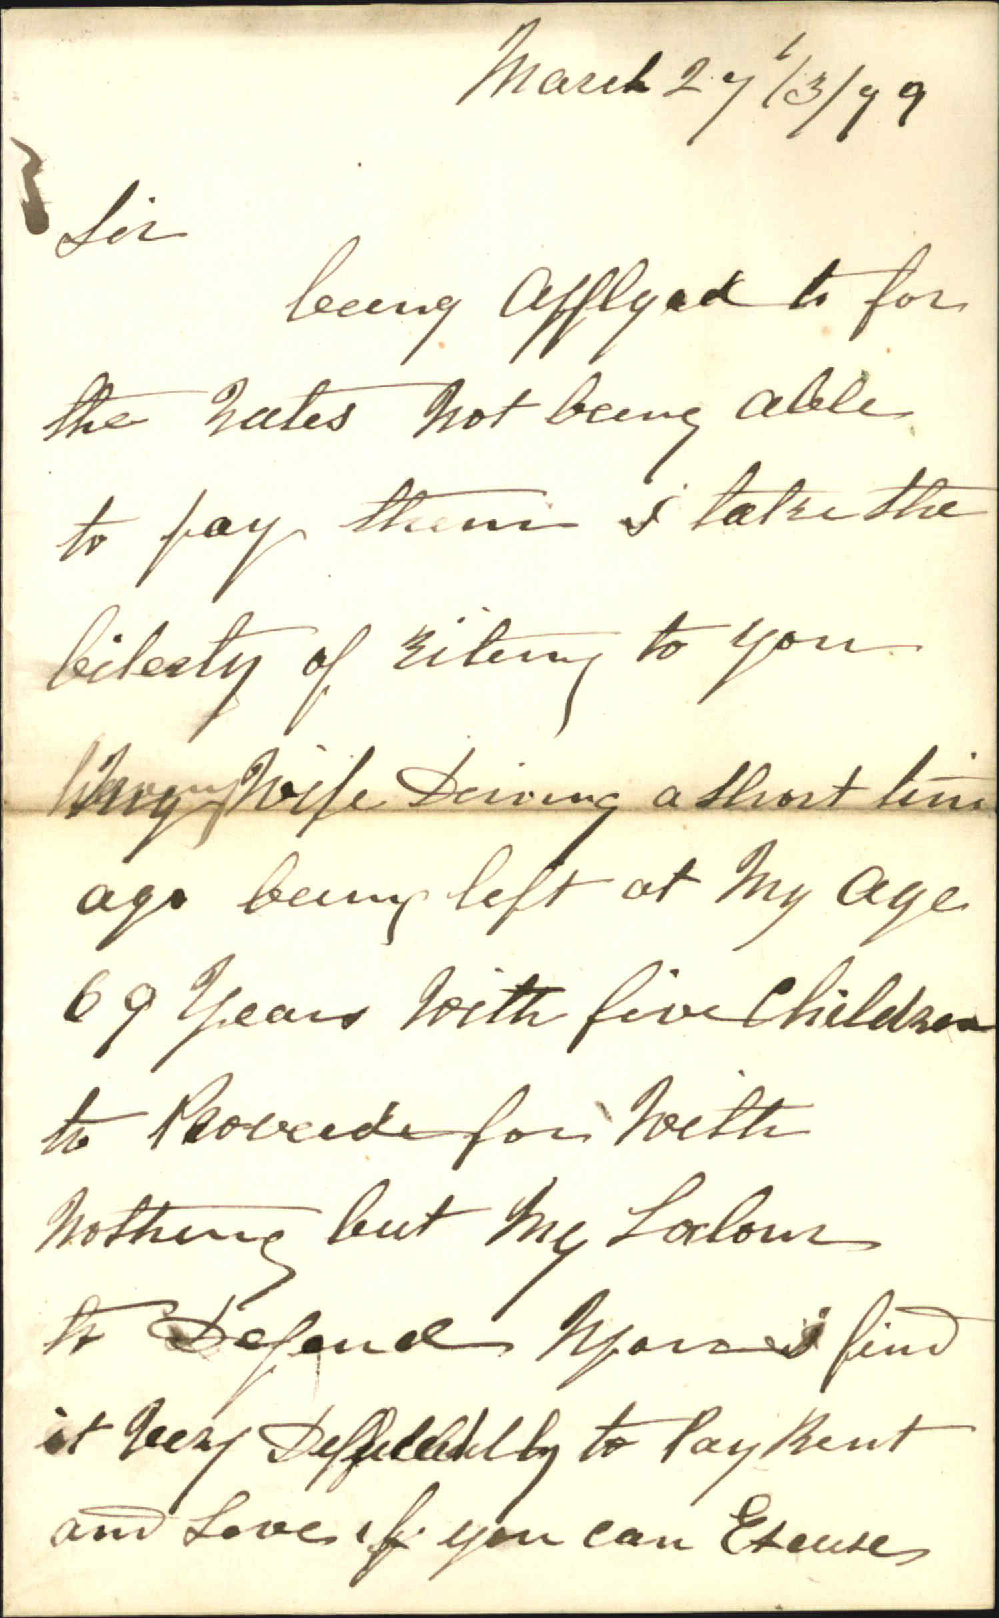 March 27/3/79
Sir
being Applyed to for
the Rates Not being able
to pay them i take the
liberty of riteng to you
My Wife Deiing a short time
ago being left at My Age
69 Years With five Children
to Proveede for With
Nothing but My Labour
to Depend Upon i find
it Very to Pay Rent
and Leve if you can Excuse